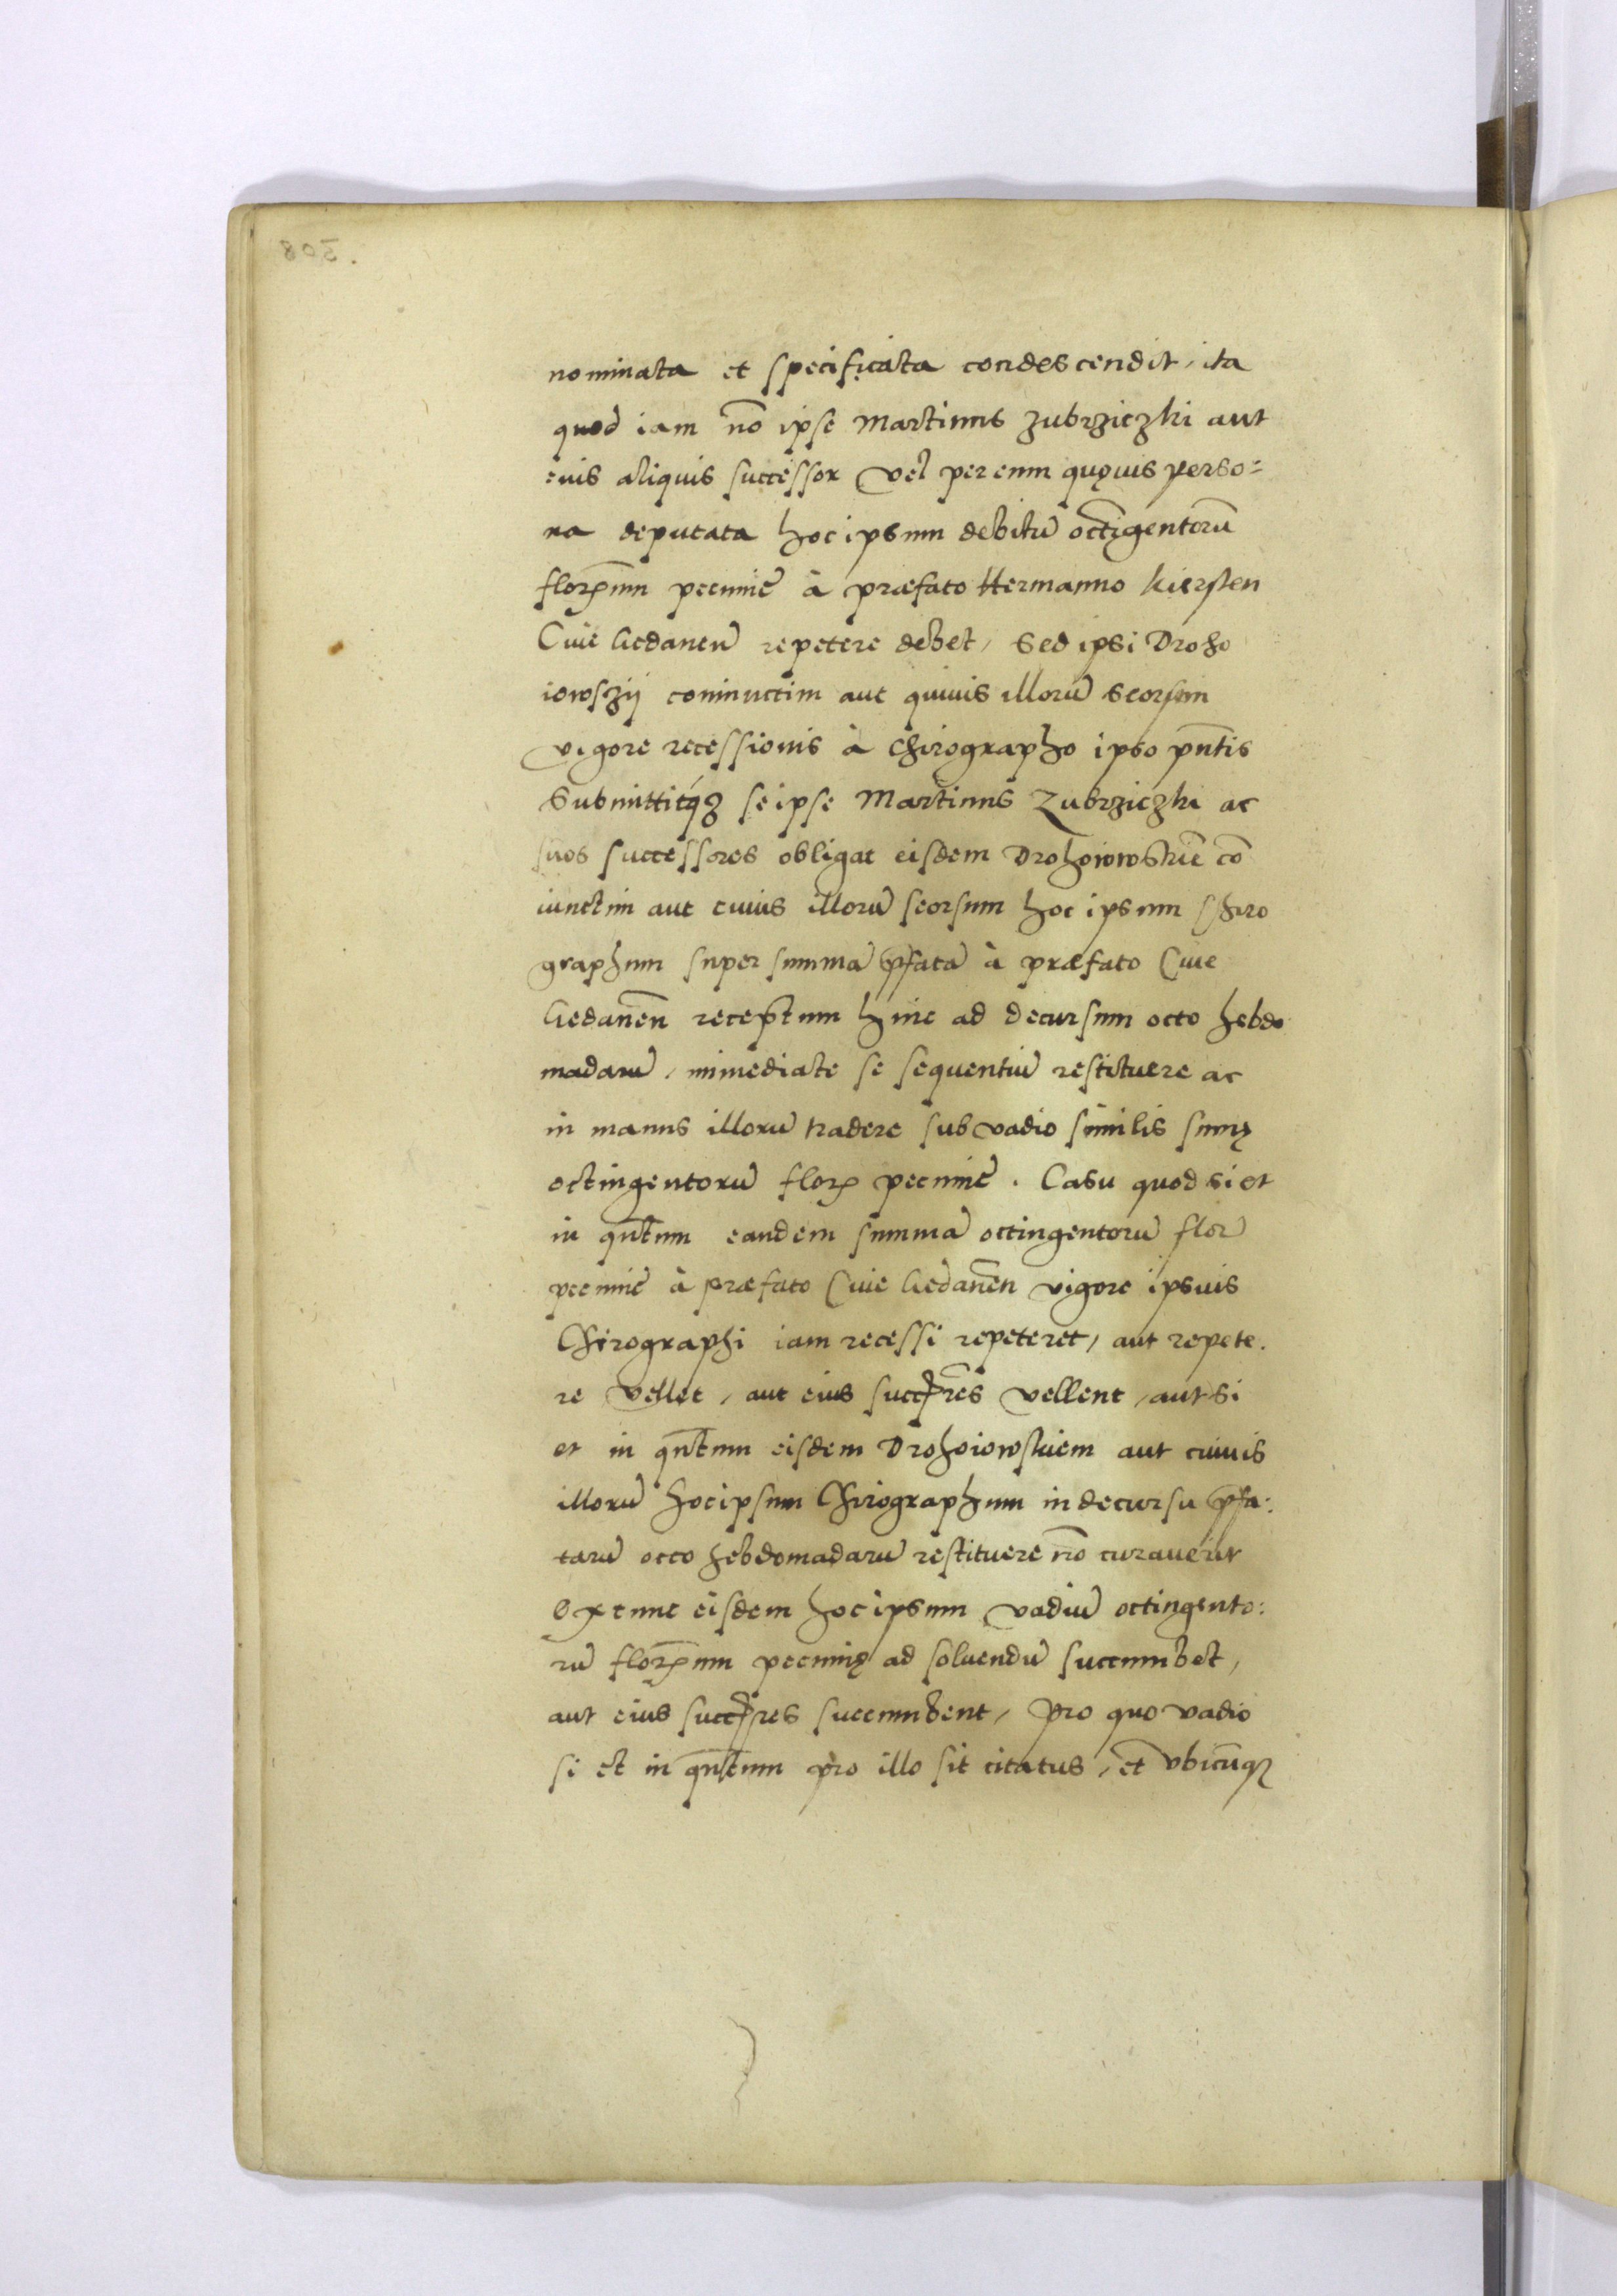 nominata et specificata condescendit, ita
quod iam nō ipse Martinus Zubrziczki aut
eius aliquis successor vel per eum quęuis perso=
na deputata hoc ipsum debitū octīgentorū
florenūm pecuniē à præfato Hermanno Kiersten
Ciue Gedanen̄ repetere debet, Sed ipsi Droho
iowszij coniunctim aut quiuis illorū seorsim
vigore recessionis à Chirographo ipso pn̄tis
Submittitq́ꝫ se ipse Martinus Zubrziczki ac
suos successores obligat eisdem Drohoiowskiē cō
iunctim aut cuiuis illorū seorsum hoc ipsum Chiro
graphum super summā p̄fatā à præfato Ciue
Gedanēn receptum hinc ad decursum octo hebdo
madarū, immediate se sequentiū restituere ac
in manus illorū tradere sub vadio similis sumę
octingentorū flor pecuniē. Casu quod si et
in qn̄tum eandem summā octingentorū flor̄
pecuniē à præfato Ciue Gedanēn vigore ipsius
Chirographi iam recessi repeteret, aut repete.
re vellet, aut eius succr̄es vellent, aut si
et in qn̄tum eisdem Drohoiowskiem aut cuiuis
illorū hoc ipsum Chirographum in decursu p̄fa:
tarū octo hebdomadarū restituere nō curauerit
Extunc eisdem hoc ipsum vadiū octingento:
rū florenūm pecunię ad soluendū succumbet,
aut eius succr̄es succumbent, Pro quo vadio
si et in qn̄tum pro illo sit citatus, et vbicūqꝫ